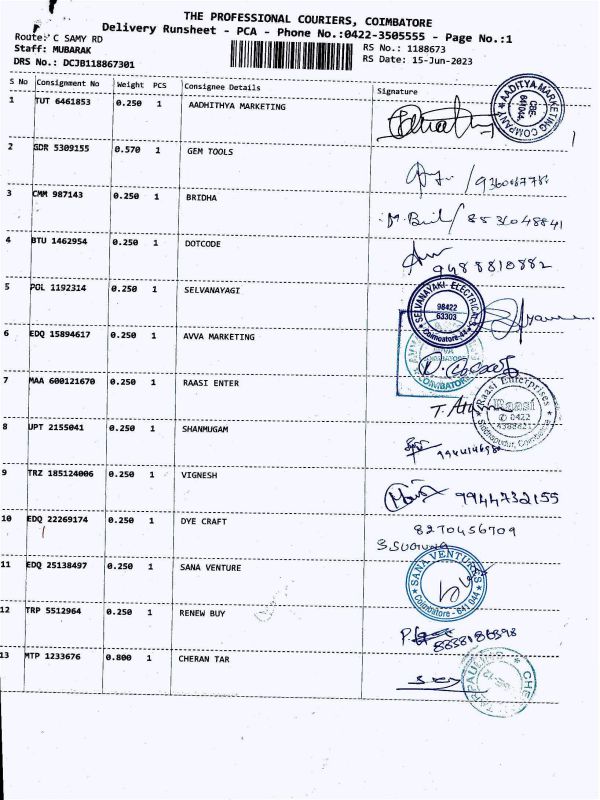 THE PROFESSIONAL COURIERS, COIMBATORE
Delivery Runsheet - PCA - Phone No.:0422-3505555 - Page No.:1
Route: C SAMY RD
Staff: MUBARAK
DRS No.: DCJB118867301
RS No.: 1188673
RS Date: 15-Jun-2023
S No Consignment No Weight PCS Consignee Details Signature
1 TUT 6461853 0.250 1 AADHITHYA MARKETING
AADITYA MARKETING COMPANY CBE- 641044
2 GDR 5309155 0.570 1 GEM TOOLS
3 CMM 987143 0.250 1 BRIDHA
8536048841
4 BTU 1462954 0.250 1 DOTCODE
9488810882
5 POL 1192314 0.250 1 SELVANAYAGI
SELVANAYAKI ELECTRICALS 98422 63303 Coimbatore-44
6 EDQ 15894617 0.250 1 AVVA MARKETING
AVVA COIMBATORE
7 MAA 600121670 0.250 1 RAASI ENTER
Raasi Enterprises Raasi 0422
8 UPT 2155041 0.250 1 SHANMUGAM
9 TRZ 185124006 0.250 1 VIGNESH
9944732155
10 EDQ 22269174 0.250 1 DYE CRAFT
8270456709
11 EDQ 25138497 0.250 1 SANA VENTURE
SANA VENTURES Coimbatore - 641 044
12 TRP 5512964 0.250 1 RENEW BUY
13 MTP 1233676 0.800 1 CHERAN TAR